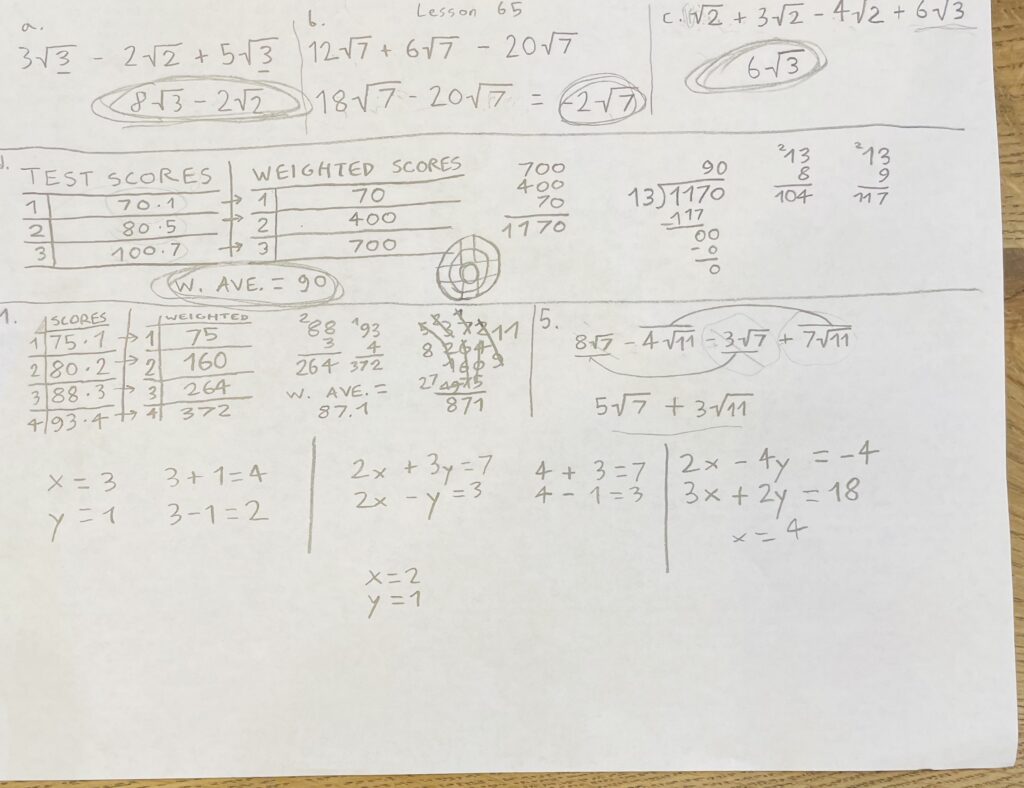 Lesson 65
a.
3√3 - 2√2 + 5√3
8√3 - 2√2
b.
12√7 + 6√7 - 20√7
18√7 - 20√7 = -2√7
c. √2 + 3√2 - 4√2 + 6√3
6√3
d.
TEST SCORES
1 70·1
2 80·5
3 100·7
WEIGHTED SCORES
1 70
2 400
3 700
W. AVE. = 90
700
400
70
1170
90
13)1170
-117
00
-0
0
²13
8
104
²13
9
117
1.
SCORES
1 75·1
2 80·2
3 88·3
4 93·4
WEIGHTED
1 75
2 160
3 264
4 372
²88
3
264
¹93
4
372
W. AVE. =
87.1
871
5.
8√7 - 4√11 - 3√7 + 7√11
5√7 + 3√11
x = 3
y = 1
3 + 1 = 4
3 - 1 = 2
2x + 3y = 7
2x - y = 3
4 + 3 = 7
4 - 1 = 3
x = 2
y = 1
2x - 4y = -4
3x + 2y = 18
x = 4